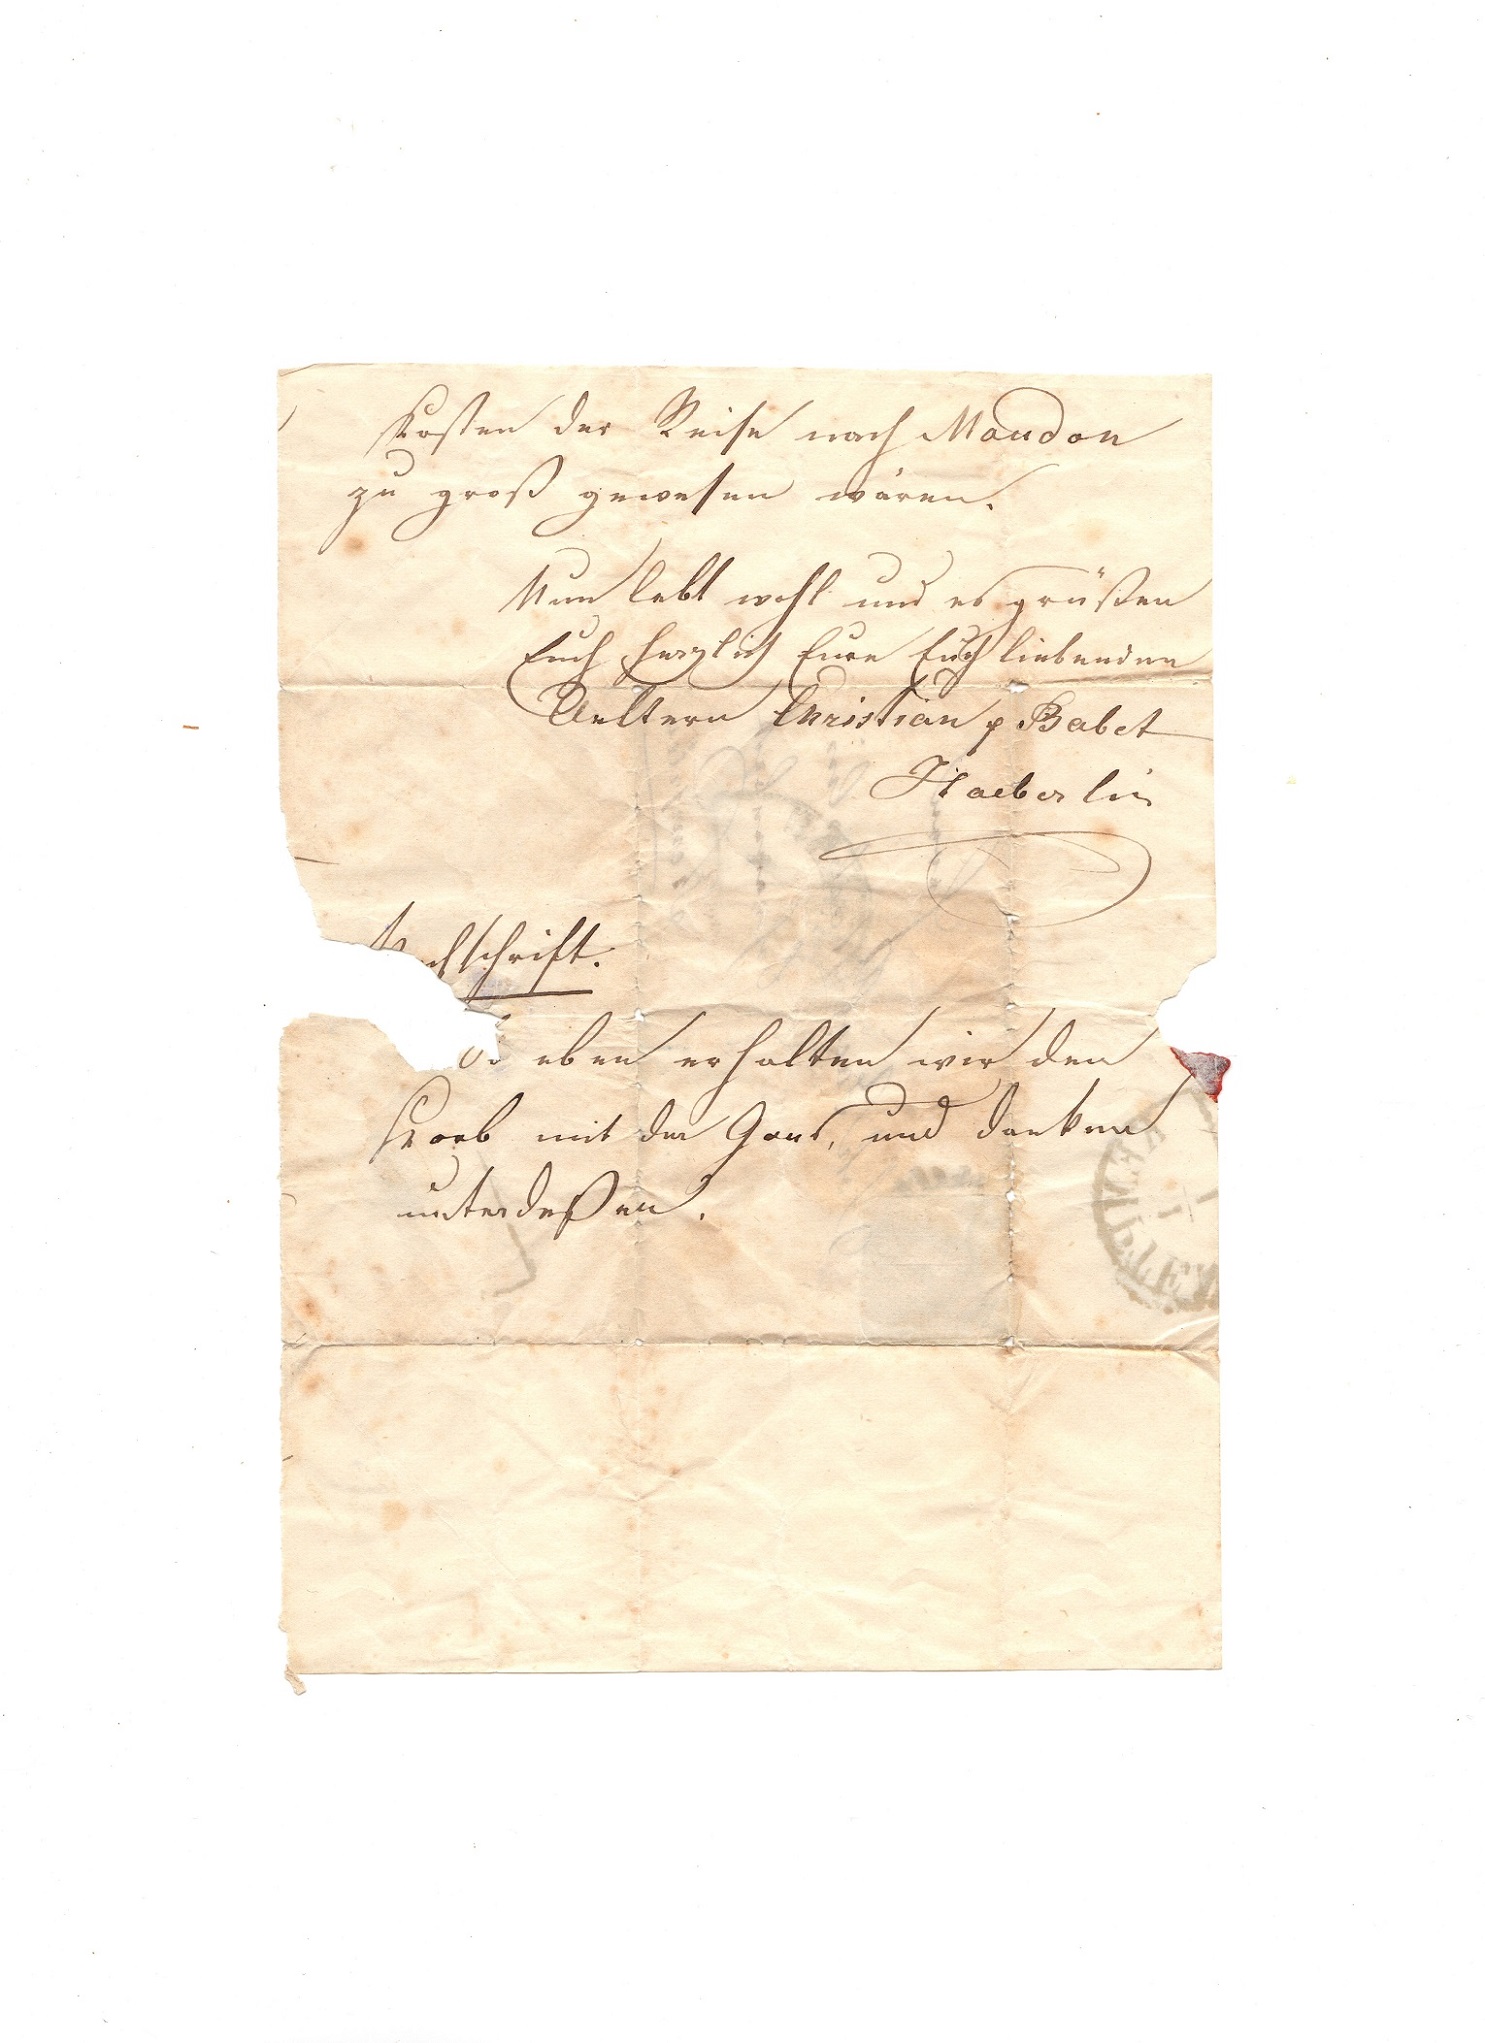 Kosten der Reise nach Moudon
zu groß gewesen wären.
Nun lebt wohl und es grüßen
Euch herzlich Eure Euch liebenden
Aeltern Christian & Babet
Haeberlin
Nachschrift.
So eben erhalten wir den
Korb mit der Gans, und danken
unterdeßen.